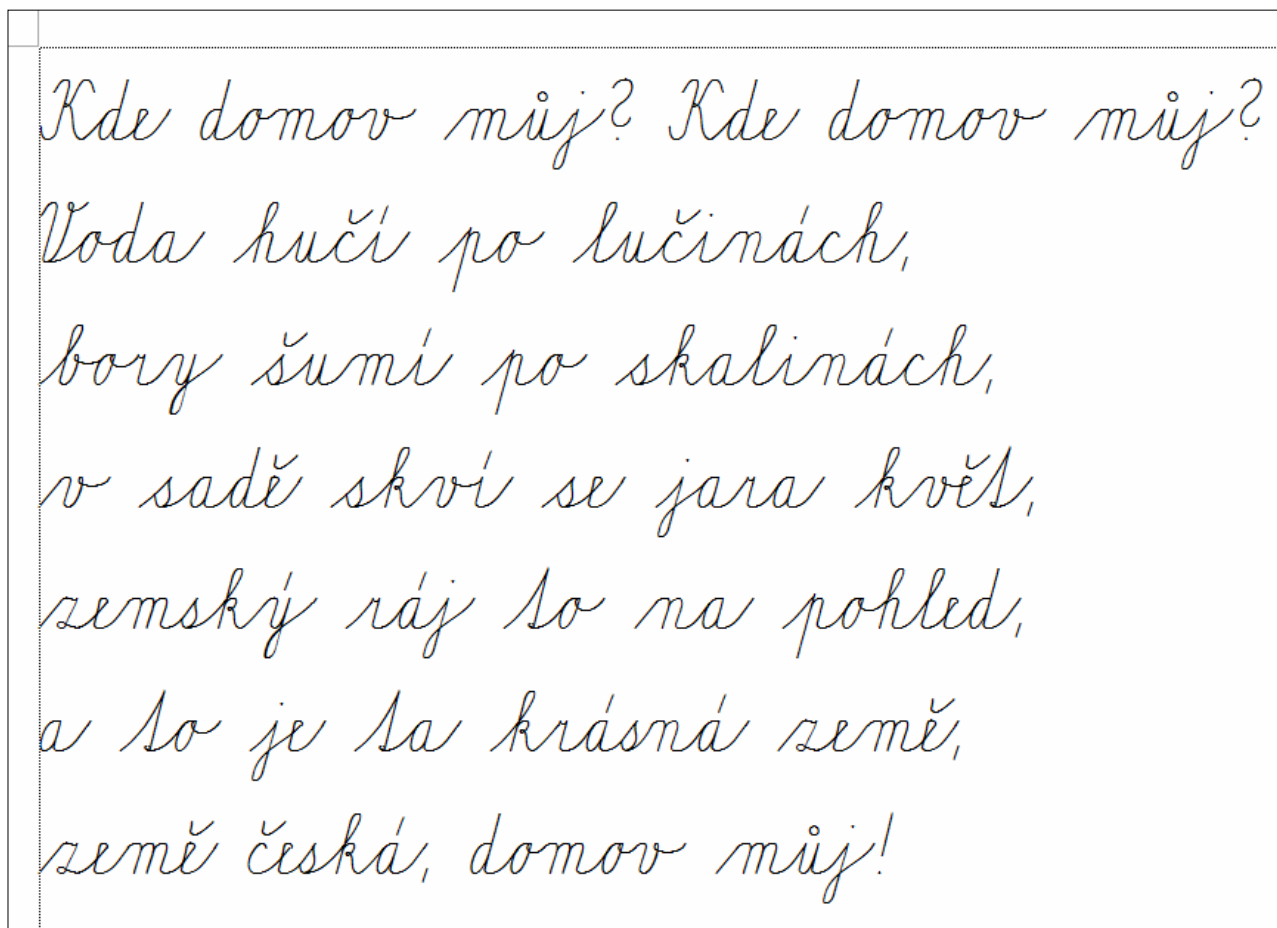 Kde domov můj? Kde domov můj?
Voda hučí po lučinách,
bory šumí po skalinách,
v sadě skví se jara květ,
zemský ráj to na pohled,
a to je ta krásná země,
země česká, domov můj!